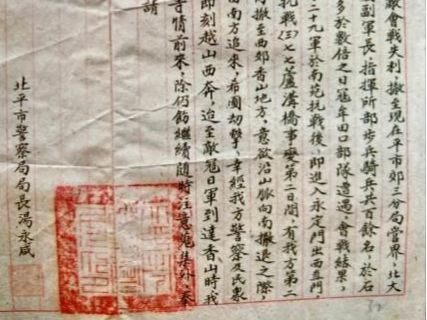 敵會戰失利，撤至現在平市郊三分局當界，北大
副軍長，指揮所部步兵騎兵共百餘名，於石
多於數倍之日寇牟田口部隊遭遇，會戰結果，
二十九軍於南苑抗戰後，即進入永定門出西直門，
抗戰(三)七七蘆溝橋事變第二日間，有我方第二
撤至西郊香山地方，意欲沿山脈向南撤退之際，
由南方追來，希圖刼擊，幸經我方警察及民衆
即刻越山西奔，迨至敵寇日軍到達香山時，我
等情前來，除仍飭繼續隨時注意蒐集外，奉
請
北平市警察局局長湯永咸